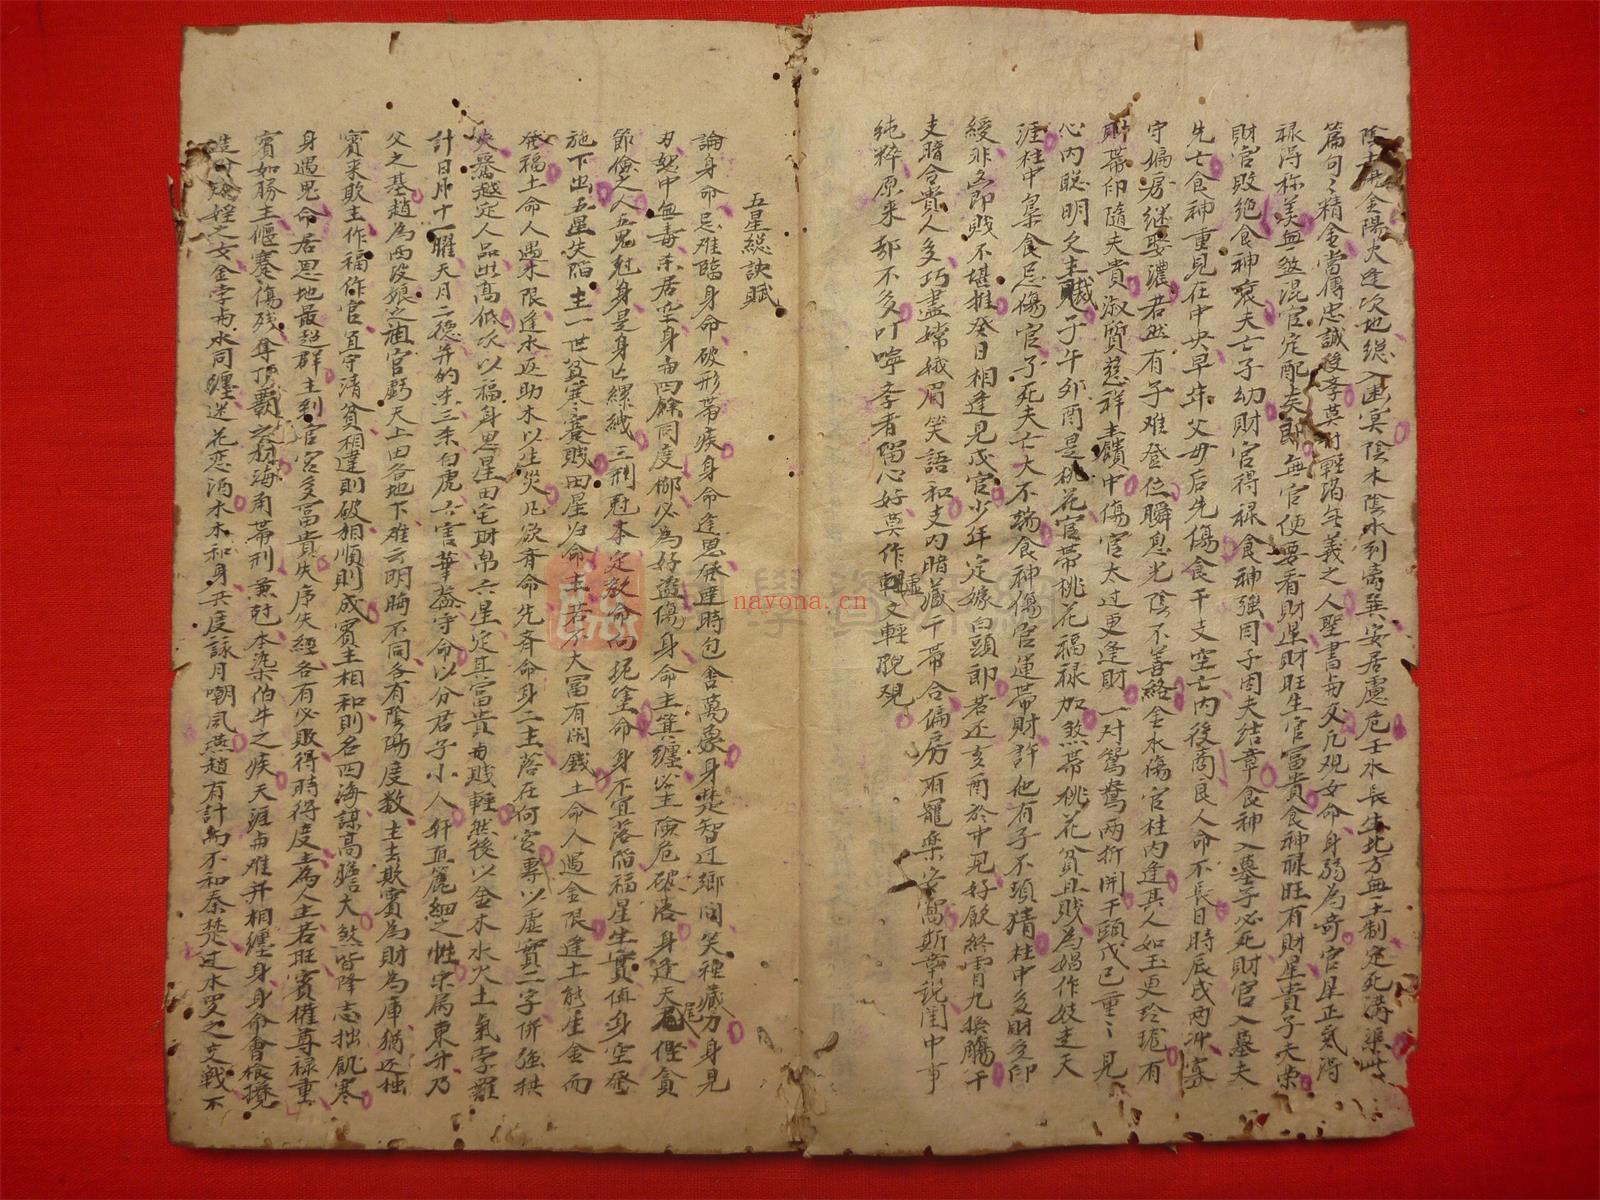 陰木陰水到离巽安居慮危壬水長生北方無土制定死溝渠此
篇句〻精金當傳忠誠後李莫付輕淊無義之人聖書与父凡覌女命身弱為奇官星正氣得
祿得称美無煞混官定配夫郎無官便要看財星財旺生官富貴食神祿旺有財星貴子夫荣
財官敗絶食神衰夫亡子幼財官得祿食神强囯子囯夫结章食神入墓子必死財官入墓夫
先亡食神重見在中央早年父母后先傷食干支空亡内後商良人命不長日時辰戌两冲寡
守偏房继娶濃若然有子难登位瞬息光陰不善終金水傷官柱内逢其人如玉更玲瓏有
財帯印隨夫貴淑質慈祥主饋中傷官太过更逢財一对鴛鴦两折開干頭戊己重〻見
心内聪明欠主賤子午卯酉是桃花官帯桃花福禄加煞帯桃花貧且賤為娼作妓走天
涯柱中梟食忌傷官子死夫亡大不端食神傷官運帯財許他有子不須猜柱中多財多印
綬非穷即賤不堪推癸日相逢見戊官少年定嫁白頭郎若还亥酉於中見好飲終宵九换觴干
支暗合貴人多巧盡嫦娥眉笑語和支内暗藏干帯合偏房有寵樂安窩斯章説闺中事
純粹原来都不多叮嚀李者留心好莫作輕文輕脫覌
虛
五星縂訣賦
論身命忌难臨身命破形帯疾身命逢恩發達時包含萬象身楚智过鄉间笑裡藏刀身見
刃怒中無毒杀居垒身与四餘同度柳必為好盗傷身命主箕纏必主險危破落身逢天尾慳貪
節儉之人五鬼尅身是身亡縲絏三刑尅本定教命尚扼塗命身不宜落陷福星生實值身空發
施下出五星失陷主一世貧寒寡賤田星归命主若不大富有闲錢土命人遇金限逢土能星金而
發福土命人遇木限逢水返助木以生災凡欲斉命先斉命身二主落在何宮專以虚實二字併强秩
決審越定人品出高低次以福身恩星田宅財帛六星定其富貴与賤輕然後以金木水火土氣孛羅
計日月十一曜天月二德并的杀三杀白虎六害華盖守命以分君子小人軒直麄細之性宗属東升乃
父之基趙為西没娘之祖官虧天上田各地下难云明晦不同各有陰陽度数主去欺賓為財為庫猶还拙
賓来欺主作福作官宜守清貧相違則破相順則成賓主相和則名四海謀高膽大煞皆降志拙飢寒
身遇鬼命居恩地最超群主到官宮多富貴失序失經各有必敗得時得度主為人主若旺賓權尊禄重
賓如勝主偃蹇傷残身頂覇之材海角帯刑兼尅本染伯牛之疾天涯与难并相纏身身命會根攪
淫之女金孛与水同纏迷花恋酒水木和身共度詠月嘲風燕趙有計而不和秦楚过木罗之交戦不
nayona.cn